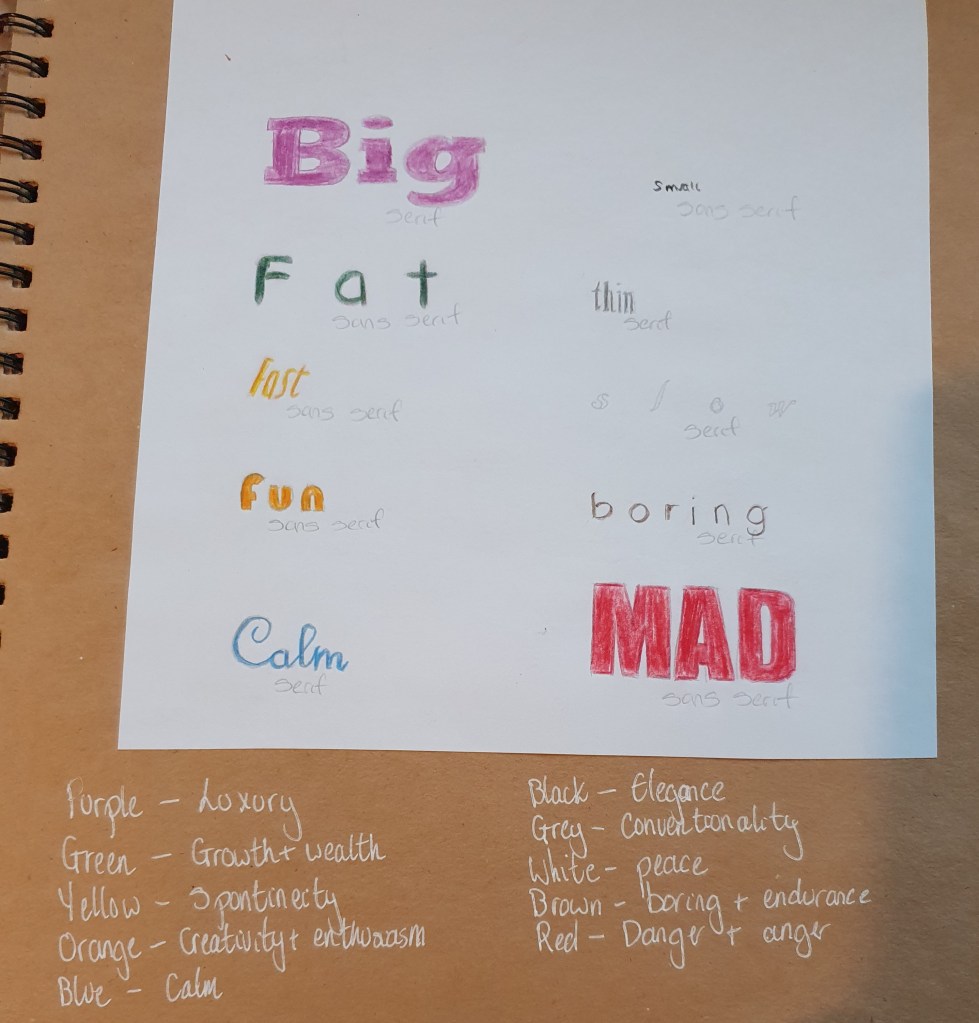 Big
serif
small
sans serif
Fat
sans serif
thin
serif
fast
sans serif
slow
serif
fun
sans serif
boring
serif
Calm
serif
MAD
sans serif
Purple – Luxury
Green – Growth + wealth
Yellow – Spontinecity
Orange – Creativity + enthuxasm
Blue – Calm
Black – Elegance
Grey – Conventionality
White – peace
Brown – boring + endurance
Red – Danger + anger